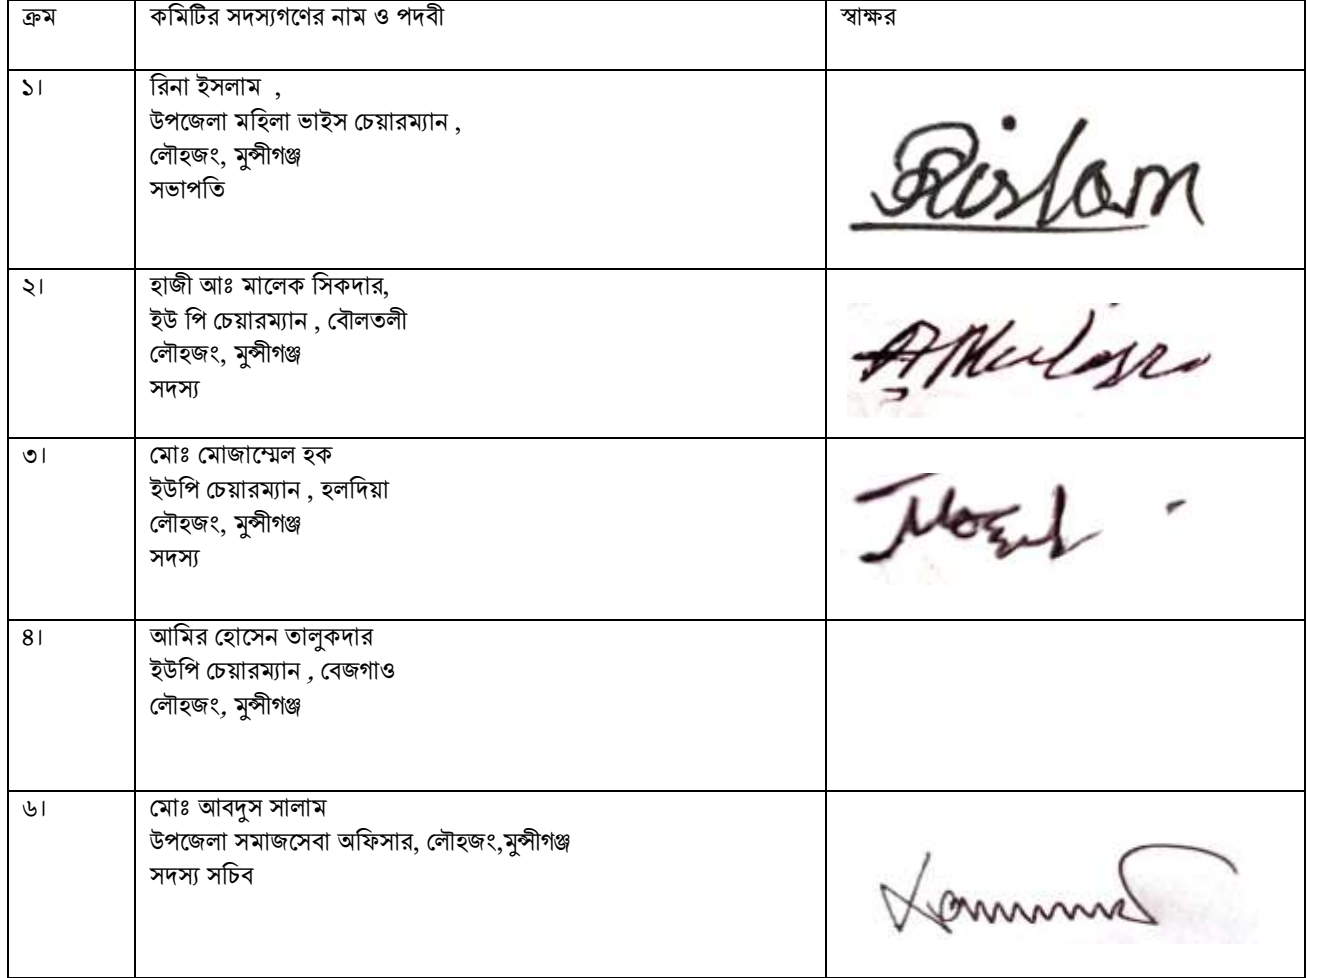 ক্রম কমিটির সদস্যগণের নাম ও পদবী স্বাক্ষর
১। রিনা ইসলাম ,
উপজেলা মহিলা ভাইস চেয়ারম্যান ,
লৌহজং, মুন্সীগঞ্জ
সভাপতি
RIslam
২। হাজী আঃ মালেক সিকদার,
ইউ পি চেয়ারম্যান , বৌলতলী
লৌহজং, মুন্সীগঞ্জ
সদস্য
৩। মোঃ মোজাম্মেল হক
ইউপি চেয়ারম্যান , হলদিয়া
লৌহজং, মুন্সীগঞ্জ
সদস্য
৪। আমির হোসেন তালুকদার
ইউপি চেয়ারম্যান , বেজগাও
লৌহজং, মুন্সীগঞ্জ
৬। মোঃ আবদুস সালাম
উপজেলা সমাজসেবা অফিসার, লৌহজং,মুন্সীগঞ্জ
সদস্য সচিব